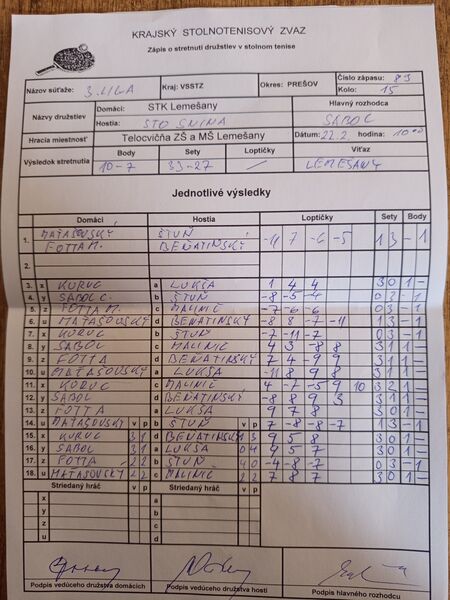 KRAJSKÝ STOLNOTENISOVÝ ZVAZ
Zápis o stretnutí družstiev v stolnom tenise
Názov súťaže: 3. LIGA Kraj: VSSTZ Okres: PREŠOV Číslo zápasu: 89 Kolo: 15
Názvy družstiev Domáci: STK Lemešany Hlavný rozhodca
Hostia: STO SNINA SABOL
Hracia miestnosť Telocvičňa ZŠ a MŠ Lemešany Dátum: 22.2. hodina: 10:00
Výsledok stretnutia Body Sety Loptičky Víťaz
10-7 39-27 / LEMEŠANY
Jednotlivé výsledky
Domáci Hostia Loptičky Sety Body
1. MATAŠOVSKÝ ŠTUŇ -11 7 -6 -5 1 3 - 1
FOTTA M. BEŇATINSKÝ
2.
3. x KURUC a LUKŠA 1 4 4 3 0 1 -
4. y SABOL C. b ŠTUŇ -8 -5 -4 0 3 - 1
5. z FOTTA M. c MALINIČ -7 -6 -6 0 3 - 1
6. u MATAŠOVSKÝ d BEŇATINSKÝ -8 8 -7 -11 1 3 - 1
7. x KURUC b ŠTUŇ -7 -11 -7 0 3 - 1
8. y SABOL c MALINIČ 4 3 -8 8 3 1 1 -
9. z FOTTA d BEŇATINSKÝ 7 4 -9 9 3 1 1 -
10. u MATAŠOVSKÝ a LUKŠA -11 8 9 8 3 1 1 -
11. x KURUC c MALINIČ 4 -7 -5 9 10 3 2 1 -
12. y SABOL d BEŇATINSKÝ -8 8 9 3 3 1 1 -
13. z FOTTA a LUKŠA 9 7 8 3 0 1 -
14. u MATAŠOVSKÝ v p b ŠTUŇ v p 7 -8 -8 -7 1 3 - 1
15. x KURUC 3 1 d BEŇATINSKÝ 1 3 9 5 8 3 0 1 -
16. y SABOL 3 1 a LUKŠA 0 4 9 5 7 3 0 1 -
17. z FOTTA 2 2 b ŠTUŇ 4 0 -4 -8 -7 0 3 - 1
18. u MATAŠOVSKÝ 2 2 c MALINIČ 2 2 7 8 7 3 0 1 -
Striedaný hráč v p Striedaný hráč v p
x a
y b
z c
u d
Podpis vedúceho družstva domácich Podpis vedúceho družstva hostí Podpis hlavného rozhodcu